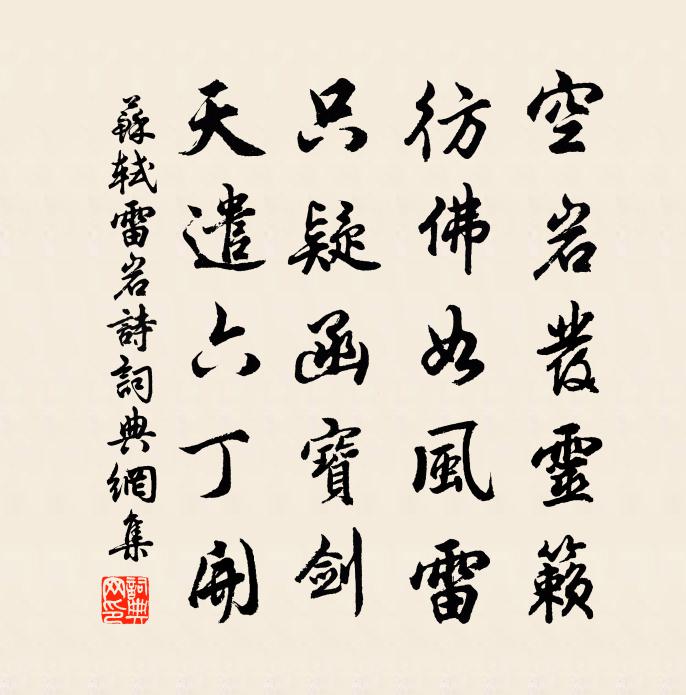 空岩發靈籟
彷佛如風雷
只疑函寶劍
天遣六丁開
蘇軾雷岩詩詞典網集
詞典網印